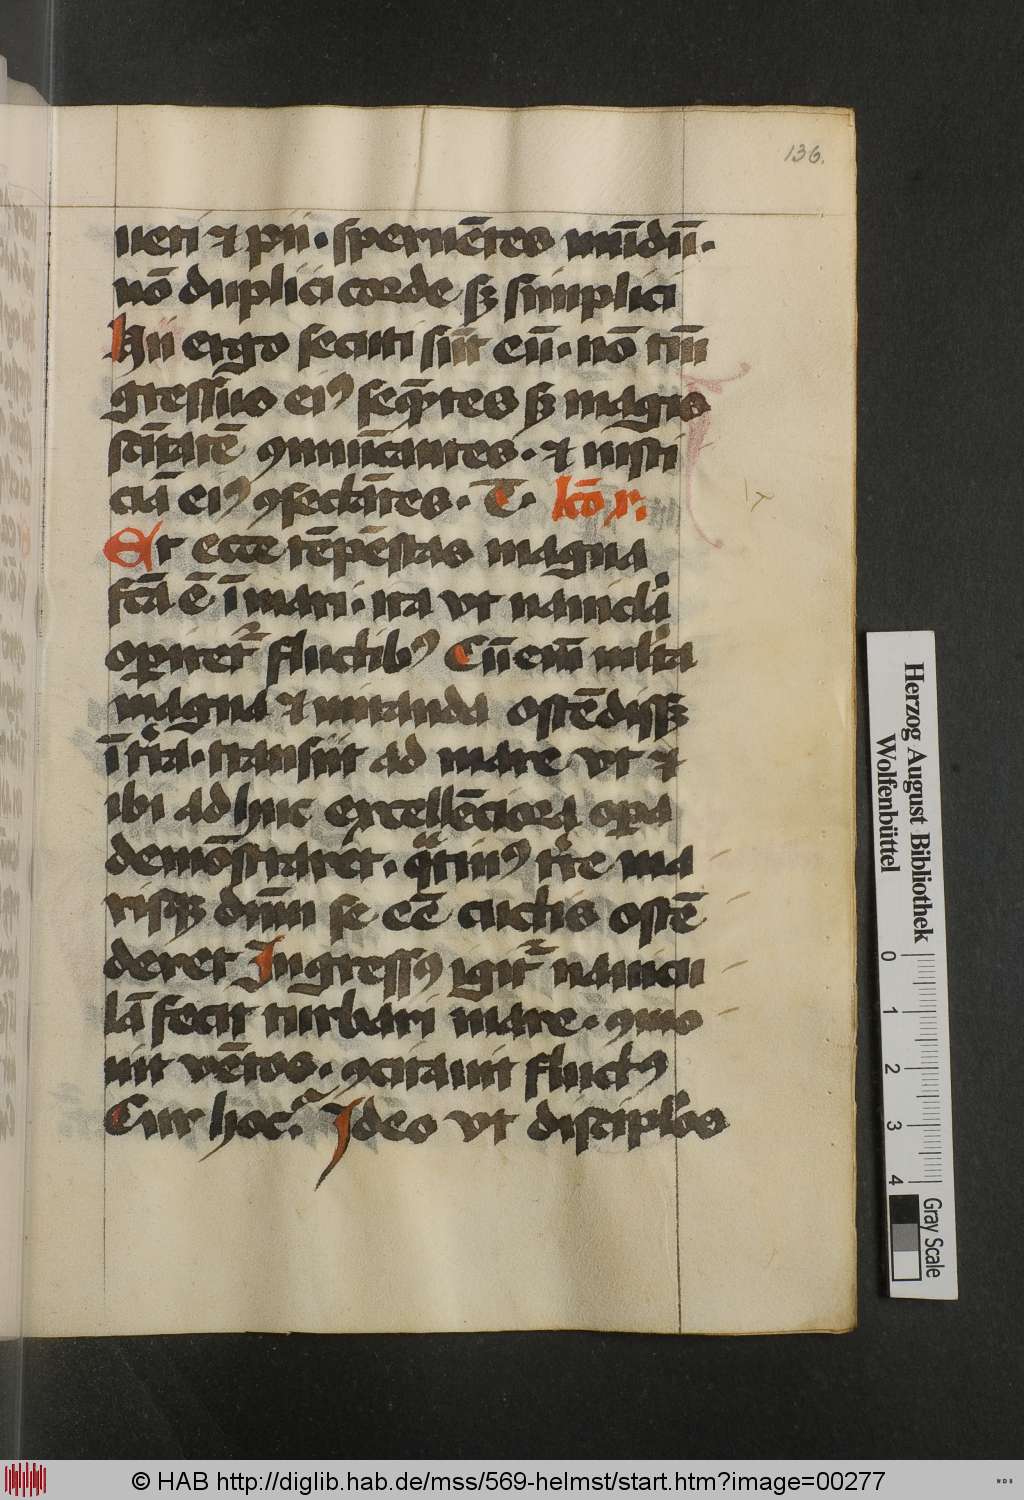 136.
ueri et pii · spernētes mūdū ·
nō duplici corde sꝫ simplici
Hii ergo secuti sūt eū · nō tm̄
gressus eiꝰ seq̄ntes sꝫ magis
sc̄itatē ꝯmutantes · et iusti
ciā eiꝰ ꝯsectātes · T̄ · lc̄o x.
Et ecce tēpestas magna
fc̄a ē ī mari · ita vt nauicla
oꝑiret᷑ fluctibꝰ Cū em̄ ml̄ta
magna et miranda ostēdissꝫ
ī tr̄a · transiit ad mare vt et
ibi adhuc excellēciora oꝑa
demōstraret · q̄tinꝰ tr̄e ma
risqꝫ dn̄m se eē cūctis ostē
deret Ingressꝰ igit᷑ nauicu
lā fecit turbari mare · ꝯmo
uit vētos · ꝯcitauit fluctꝰ
Cur hoc. Ideo vt discipl̄os
Herzog August Bibliothek
Wolfenbüttel
0 1 2 3 4
Gray Scale
© HAB http://diglib.hab.de/mss/569-helmst/start.htm?image=00277